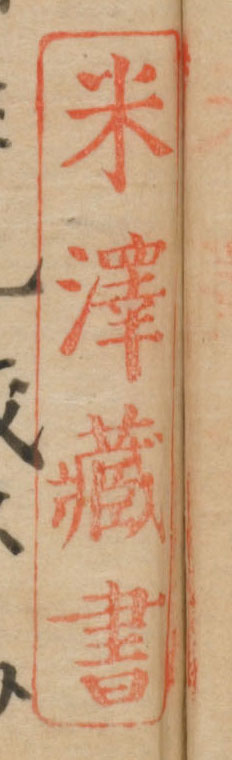 米澤藏書